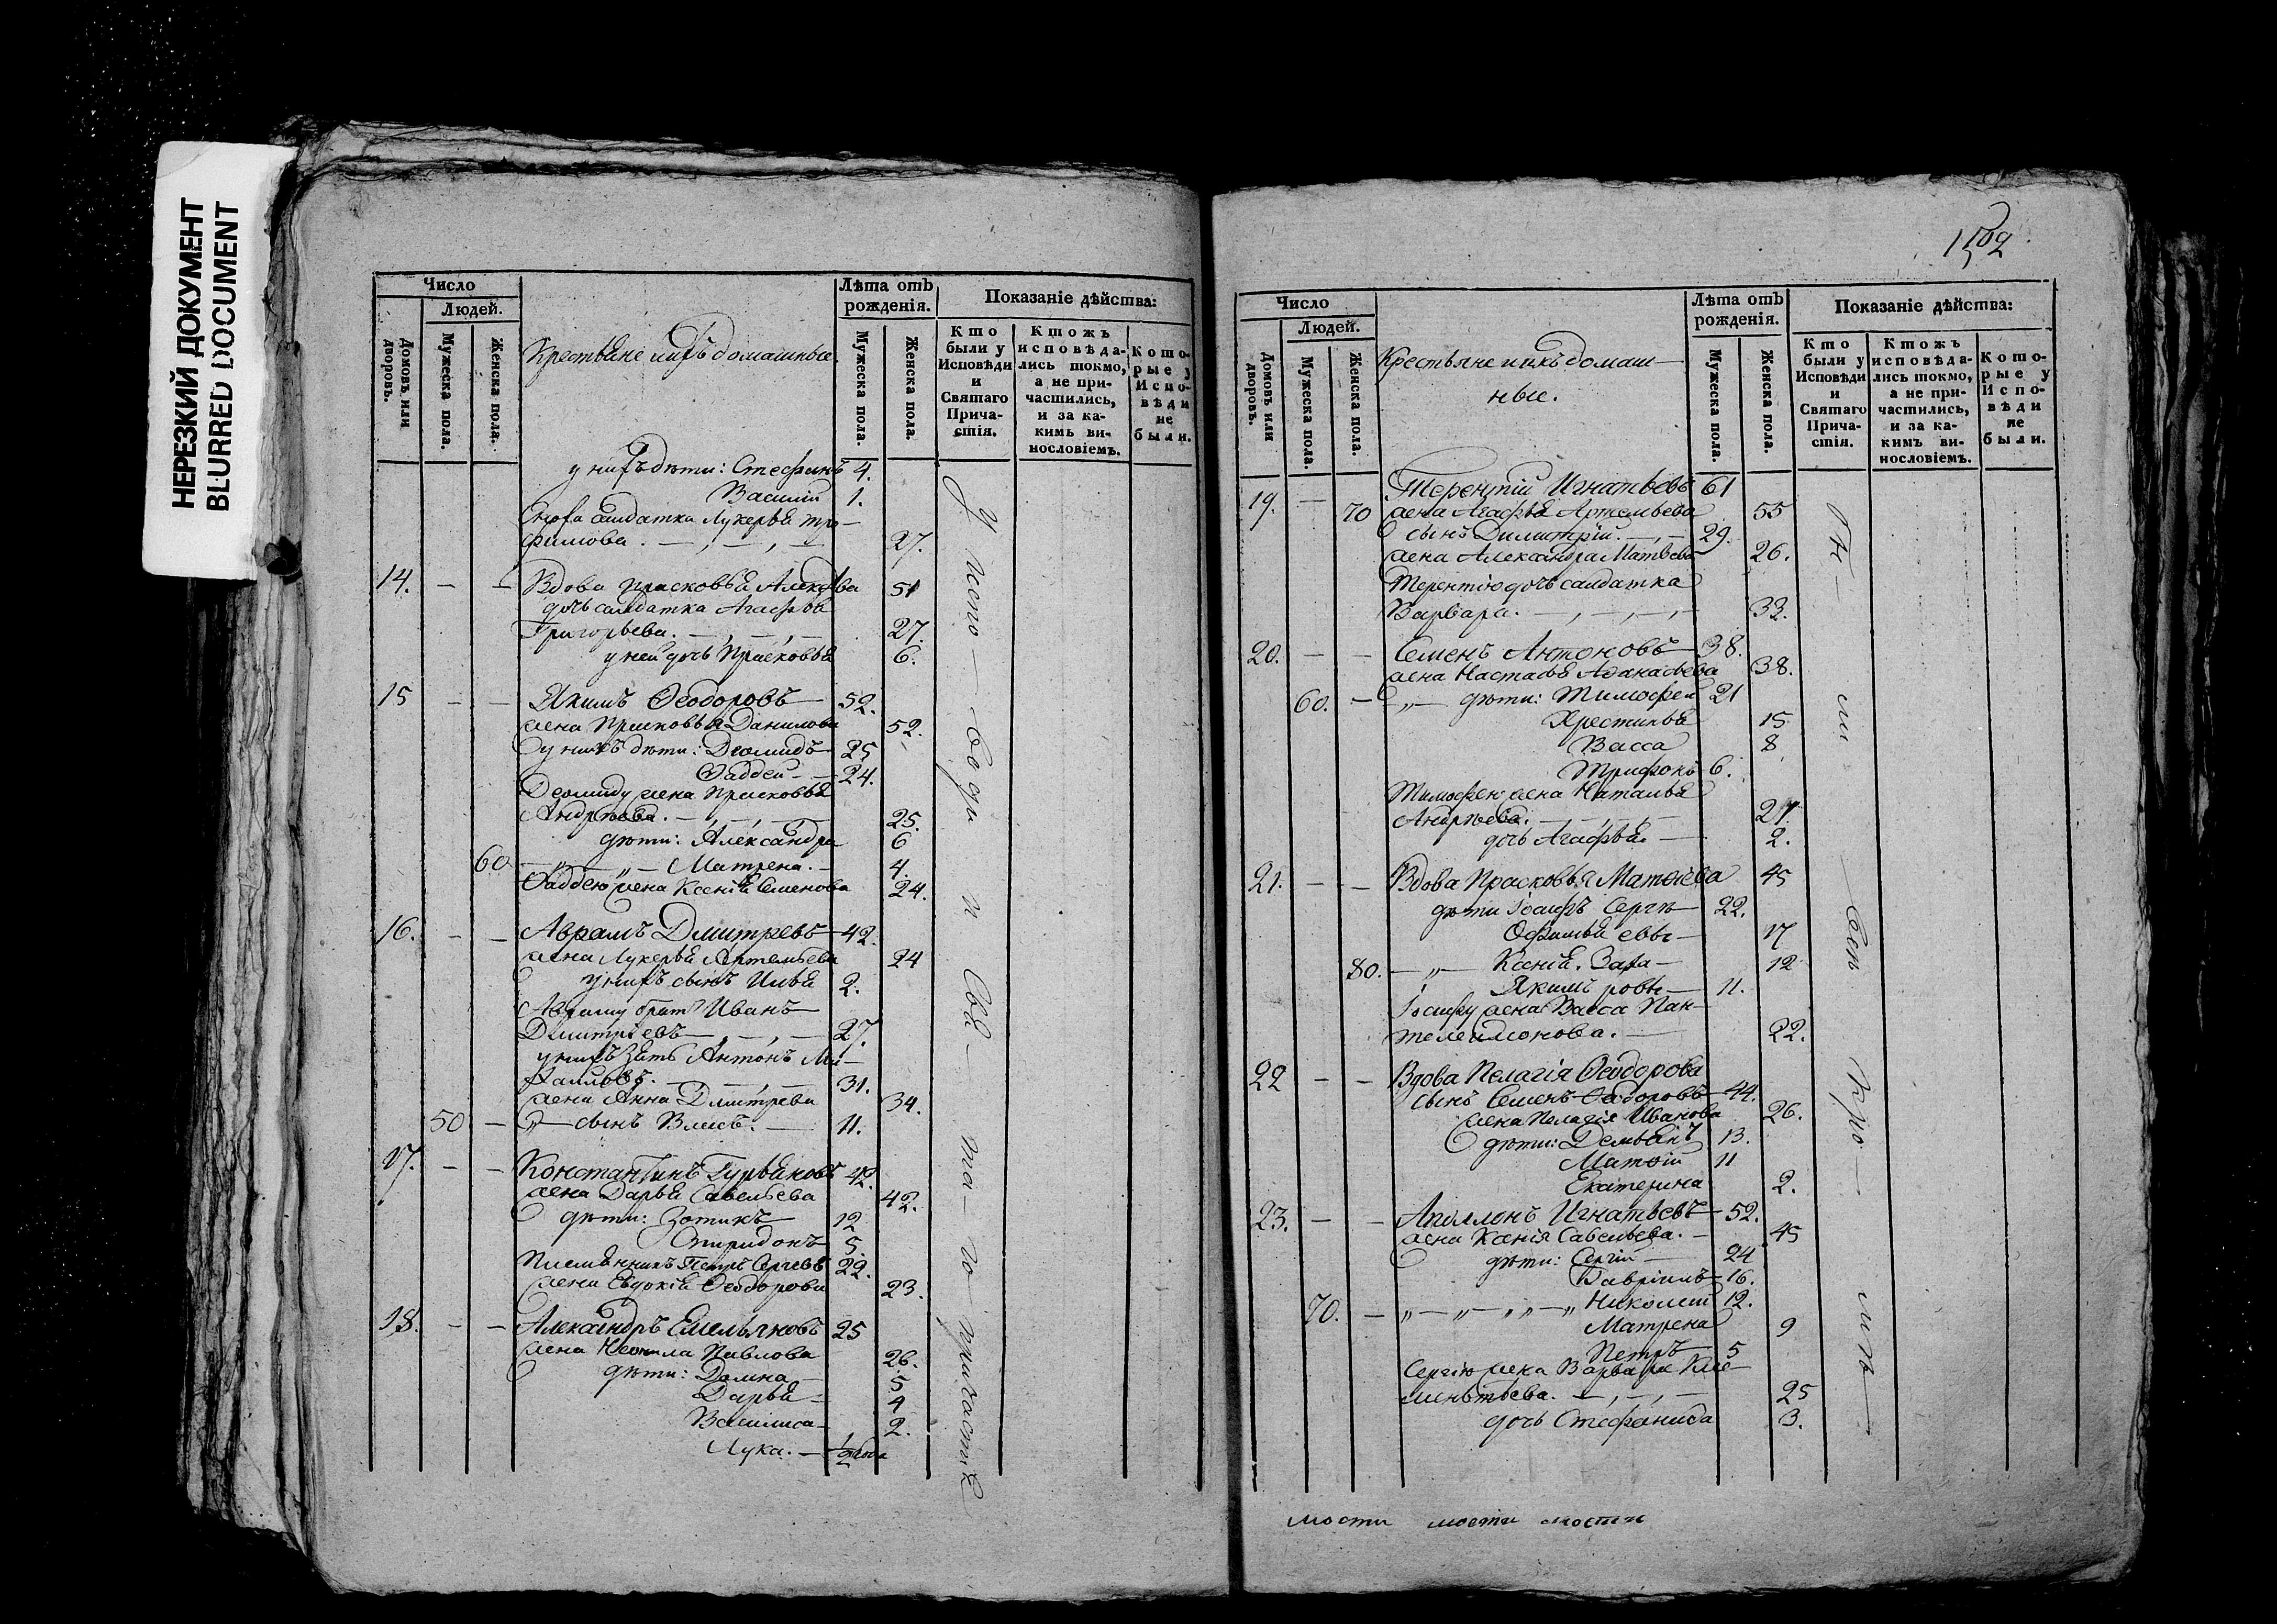 НЕРЕЗКИЙ ДОКУМЕНТ
BLURRED DOCUMENT
Число
Людей.
Домовъ или дворовъ.
Мужеска пола.
Женска пола.
Крестьяне и ихъ домашные.
Лѣта отъ рожденія.
Мужеска пола.
Женска пола.
Показаніе дѣйства:
Кто были у Исповѣди и Святаго Причастія.
Ктожъ исповѣдались токмо, а не причастились, и за какимъ винословіемъ.
Которые у Исповѣди не были.
у нихъ дѣти: Стефанъ 4.
Василій 1.
Снова салдатка Лукерья Тро-
фимова. 27.
14. — — Вдова Прасковья 51
дочь салдатка Агафья
Григорьева. 27.
у ней дочь Прасковья 6.
15 — — Якимъ Ѳеодоровъ 52.
жена Прасковья Данилова 52.
у нихъ дѣти: Деомидъ 25
Ѳаддей 24.
Деомиду жена Прасковья
Андрѣева. 25.
дѣти: Александра 6
60 Матрена. 4.
Ѳаддею жена Ксенія Семенова 24.
16. — — Аврамъ Дмитревъ 42.
жена Лукерья Артемьева 24
у нихъ сынъ Илья 2.
Авраму братъ Иванъ
Дмитріевъ 27.
у нихъ зять Антонъ Ми-
хаиловъ. 31.
жена Анна Дмитрева 34.
50 — сынъ Власъ. 11.
17. — — Константинъ Гурьяновъ 42.
жена Дарья Савельева 42.
дѣти: Зотикъ 12
Спиридонъ 5.
Племянникъ Петръ Сергеевъ 22.
жена Евдокія Ѳеодорова 23.
18. — — Александръ Емельяновъ 25
жена Неонила Павлова 26.
дѣти: Домна 5
Дарья 4
Василиса 2.
Лука. 1/2 года
у испо- веди и свя- та- го причастія
1502
Число
Людей.
Домовъ или дворовъ.
Мужеска пола.
Женска пола.
Крестьяне и ихъ домаш-
ные.
Лѣта отъ рожденія.
Мужеска пола.
Женска пола.
Показаніе дѣйства:
Кто были у Исповѣди и Святаго Причастія.
Ктожъ исповѣдались токмо, а не причастились, и за какимъ винословіемъ.
Которые у Исповѣди не были.
19. — Терентій Игнатьевъ 61
70 жена Агафья Артемьева 55
сынъ Димитрій. 29.
жена Александра Матвеева 26.
Терентію дочь салдатка
Варвара. 33.
20. — — Семенъ Антоновъ 38.
жена Настасья Аѳанасьева 38.
60. — дѣти: Тимофей 21
Хрестинья 15
Васса 8
Трифонъ 6.
Тимофею жена Наталья
Андрѣева. 21.
дочь Агафья 2.
21. — — Вдова Прасковья Матѳіева 45
дѣти Іосифъ Сергѣ- 22.
Офимья евы 17
80. Ксенія. Заха- 12
Якимъ ровъ 11.
Іосифу жена Васса Пан-
телеимонова. 22.
22 — — Вдова Пелагія Ѳеодорова
сынъ Семенъ Ѳедоровъ 44.
жена Пелагія Иванова 26.
дѣти: Демьянъ 13.
Матѳій 11
Екатерина 2.
23. — — Аполлонъ Игнатьевъ 52.
жена Ксенія Савельева. 45
дѣти: Сергій 24
Гавріилъ 16.
70. — Николай 12.
Матрена 9
Петръ 5
Сергію жена Варвара Кле-
ментьева. 25
дочь Стефанида 3.
мости мости мости